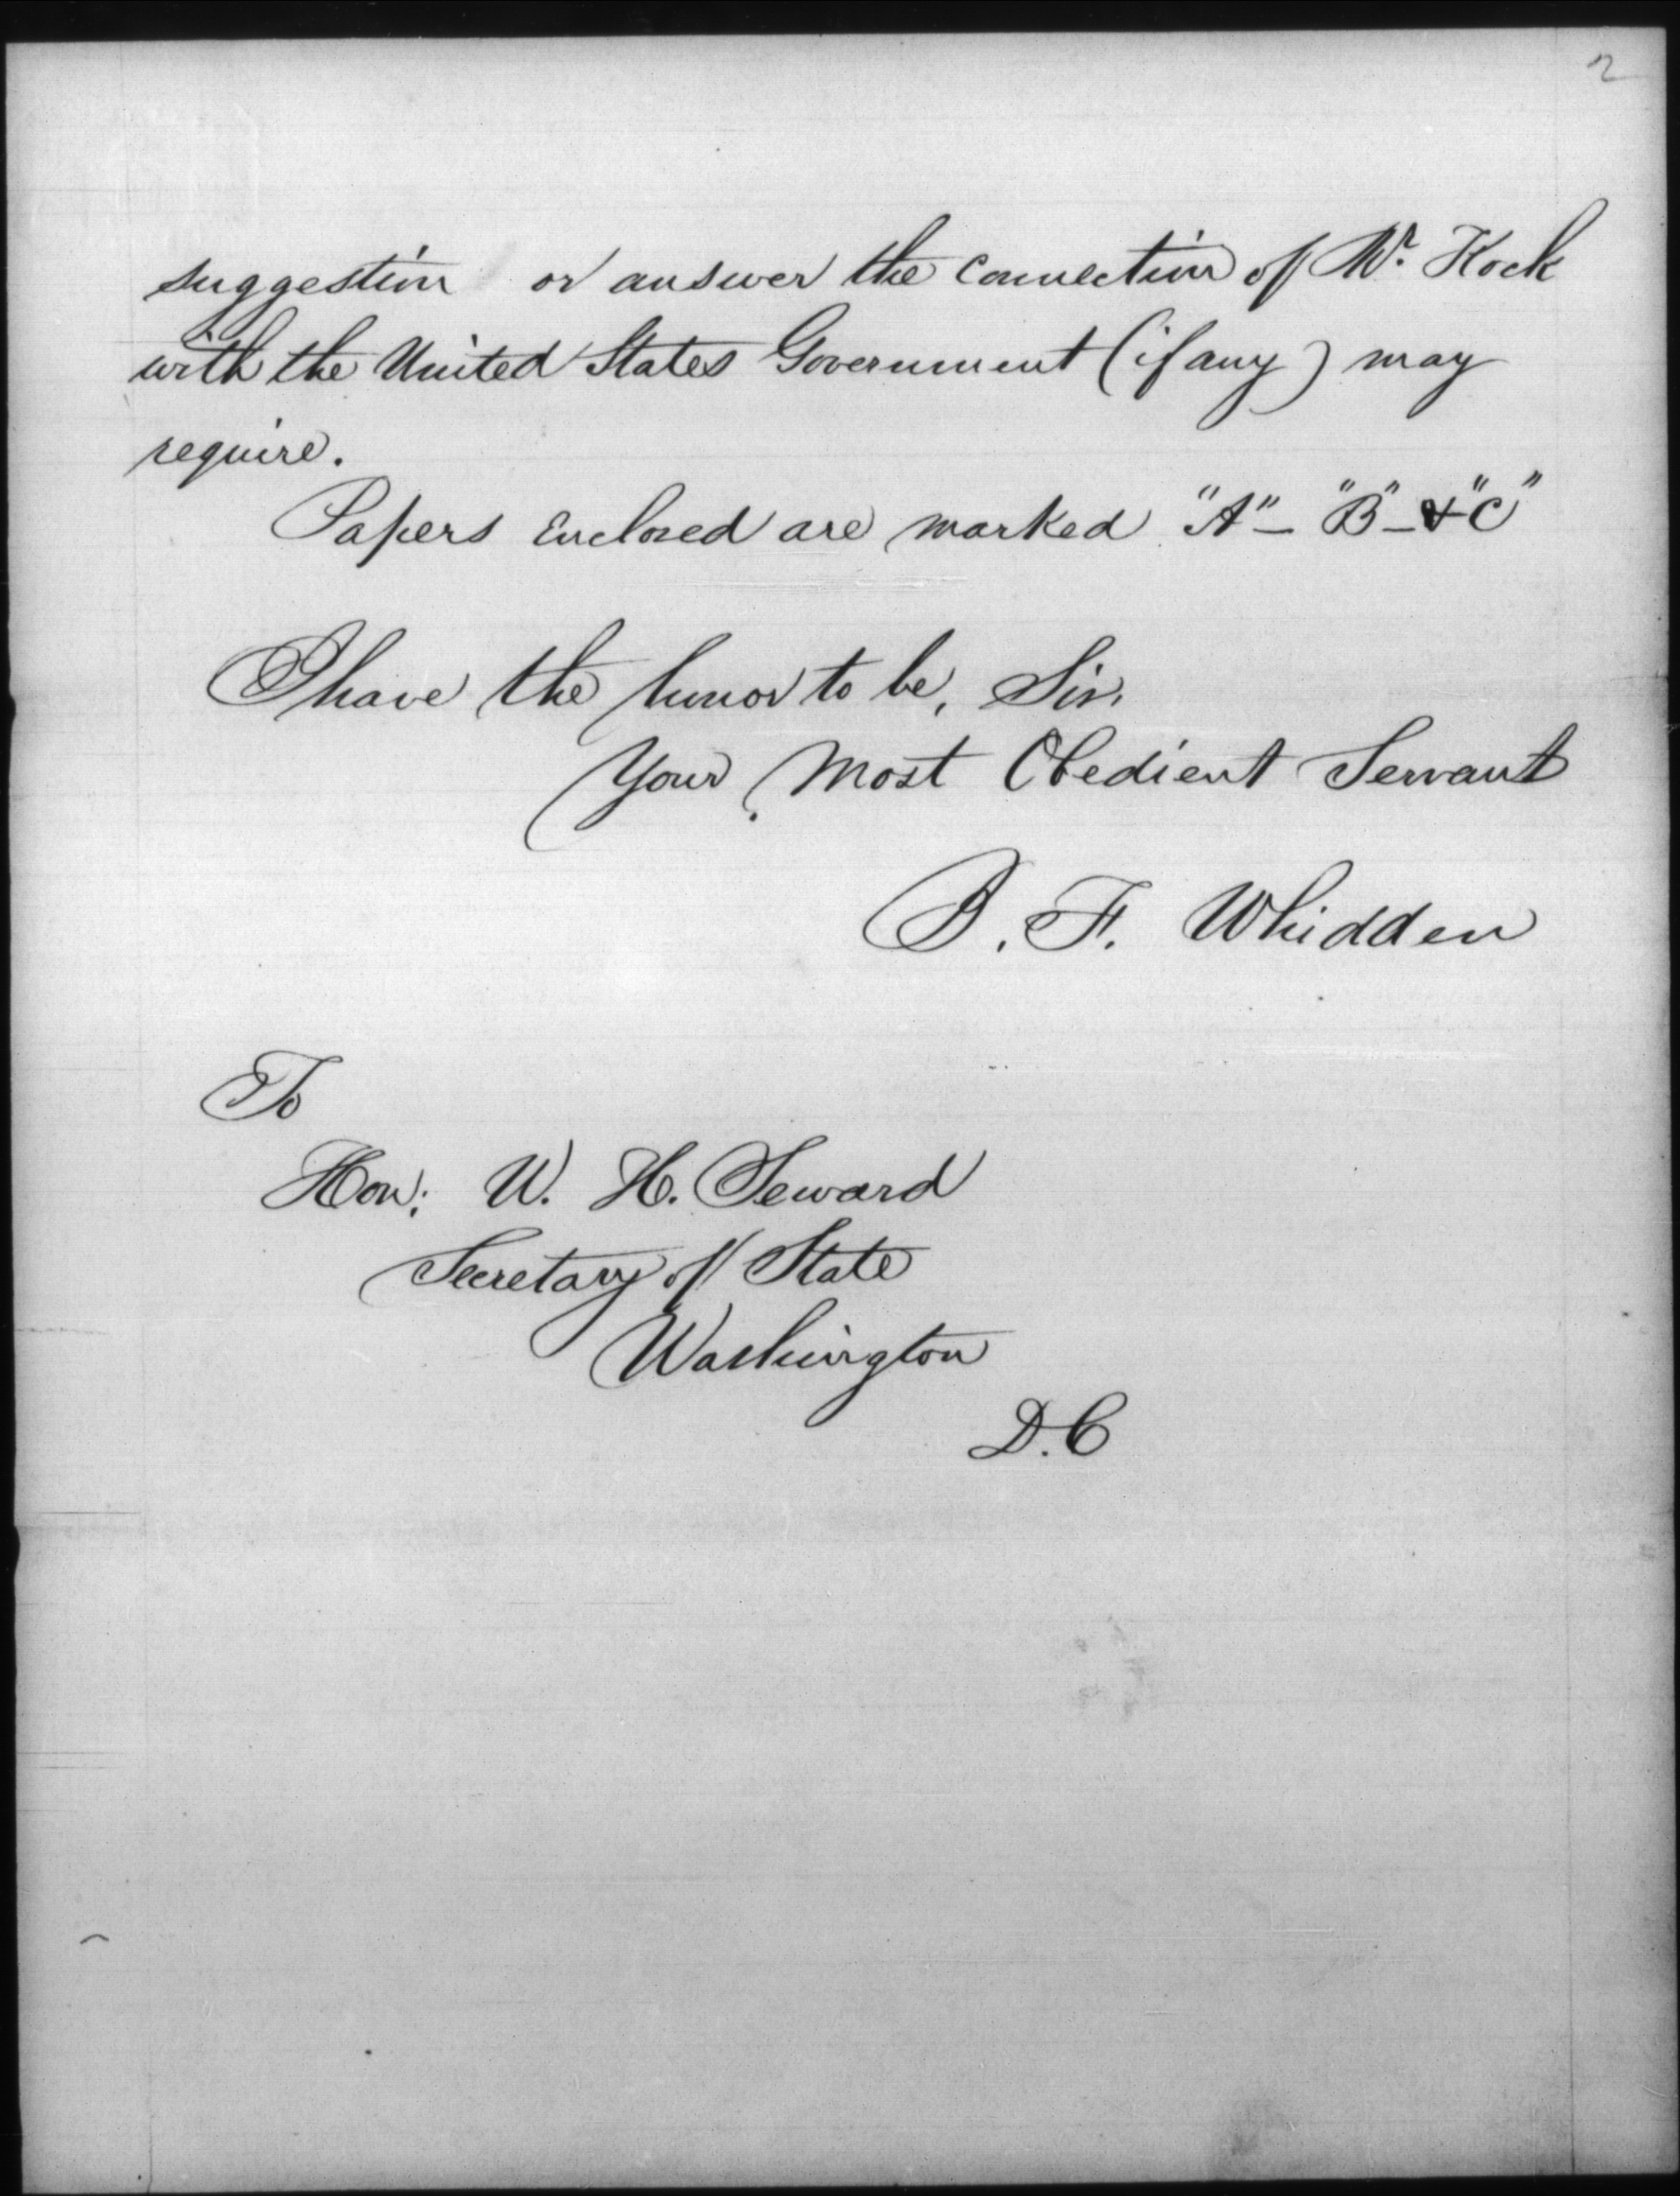 2
suggestion or answer the connection of Mr. Kock
with the United States Government (if any) may
require.
Papers Enclosed are marked "A"- "B"-&"C"
I have the honor to be, Sir,
Your Most Obedient Servant
B. F. Whidden
To
Hon: W. H. Seward
Secretary of State
Washington
D.C